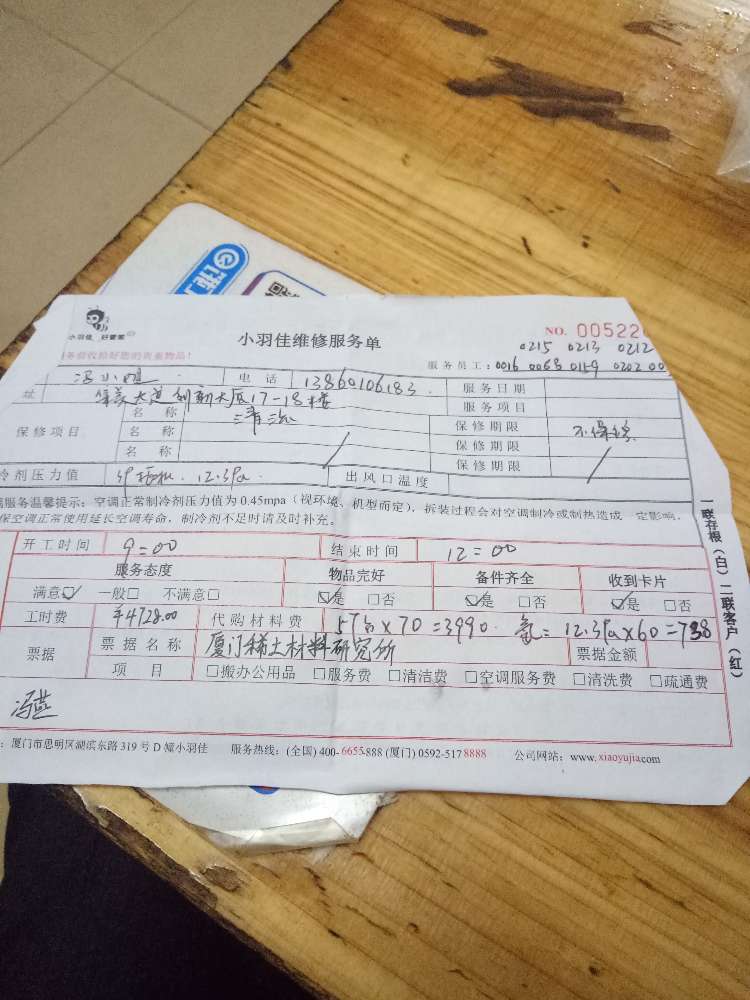 小羽佳 好管家
小羽佳维修服务单
NO. 00522
务必验收检好您的贵重物品!
0215 0213 0212
服务员工: 0016 0068 0119 0202 00
冯小姐 电话 13860106183 服务日期
址 集美大道创新大厦17-18楼 服务项目
保修项目 名称 清洗 保修期限 不保修
名称 保修期限
名称 保修期限
冷剂压力值 12.3Pa 出风口温度
服务温馨提示:空调正常制冷剂压力值为0.45mpa(视环境、机型而定),拆装过程会对空调制冷或制热造成一定影响。
保空调正常使用延长空调寿命,制冷剂不足时请及时补充。
开工时间 9:00 结束时间 12:00
服务态度 物品完好 备件齐全 收到卡片
满意☑ 一般□ 不满意□ ☑是 □否 ☑是 □否 ☑是 □否
工时费 ¥4728.00 代购材料费 57台×70=3990. 氟=12.3Pa×60=738
票据 票据名称 厦门稀土材料研究所 票据金额
项目 □搬办公用品 □服务费 □清洁费 □空调服务费 □清洗费 □疏通费
冯燕
:厦门市思明区湖滨东路319号D幢小羽佳 服务热线:(全国)400-6655-888 (厦门)0592-5178888 公司网站:www.xiaoyujia.com
一联存根(白)二联客户(红)